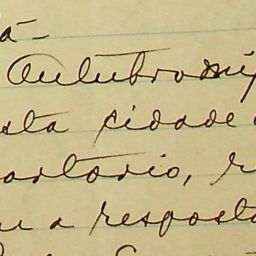 á-
Outubro mi
sta cidade
artorio, r
u a resposta